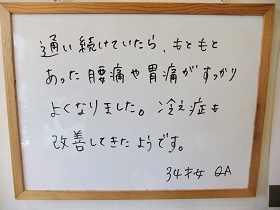 通い続けていたら、もともと
あった腰痛や胃痛がすっかり
よくなりました。冷え症も
改善してきたようです。
34才女 O.A